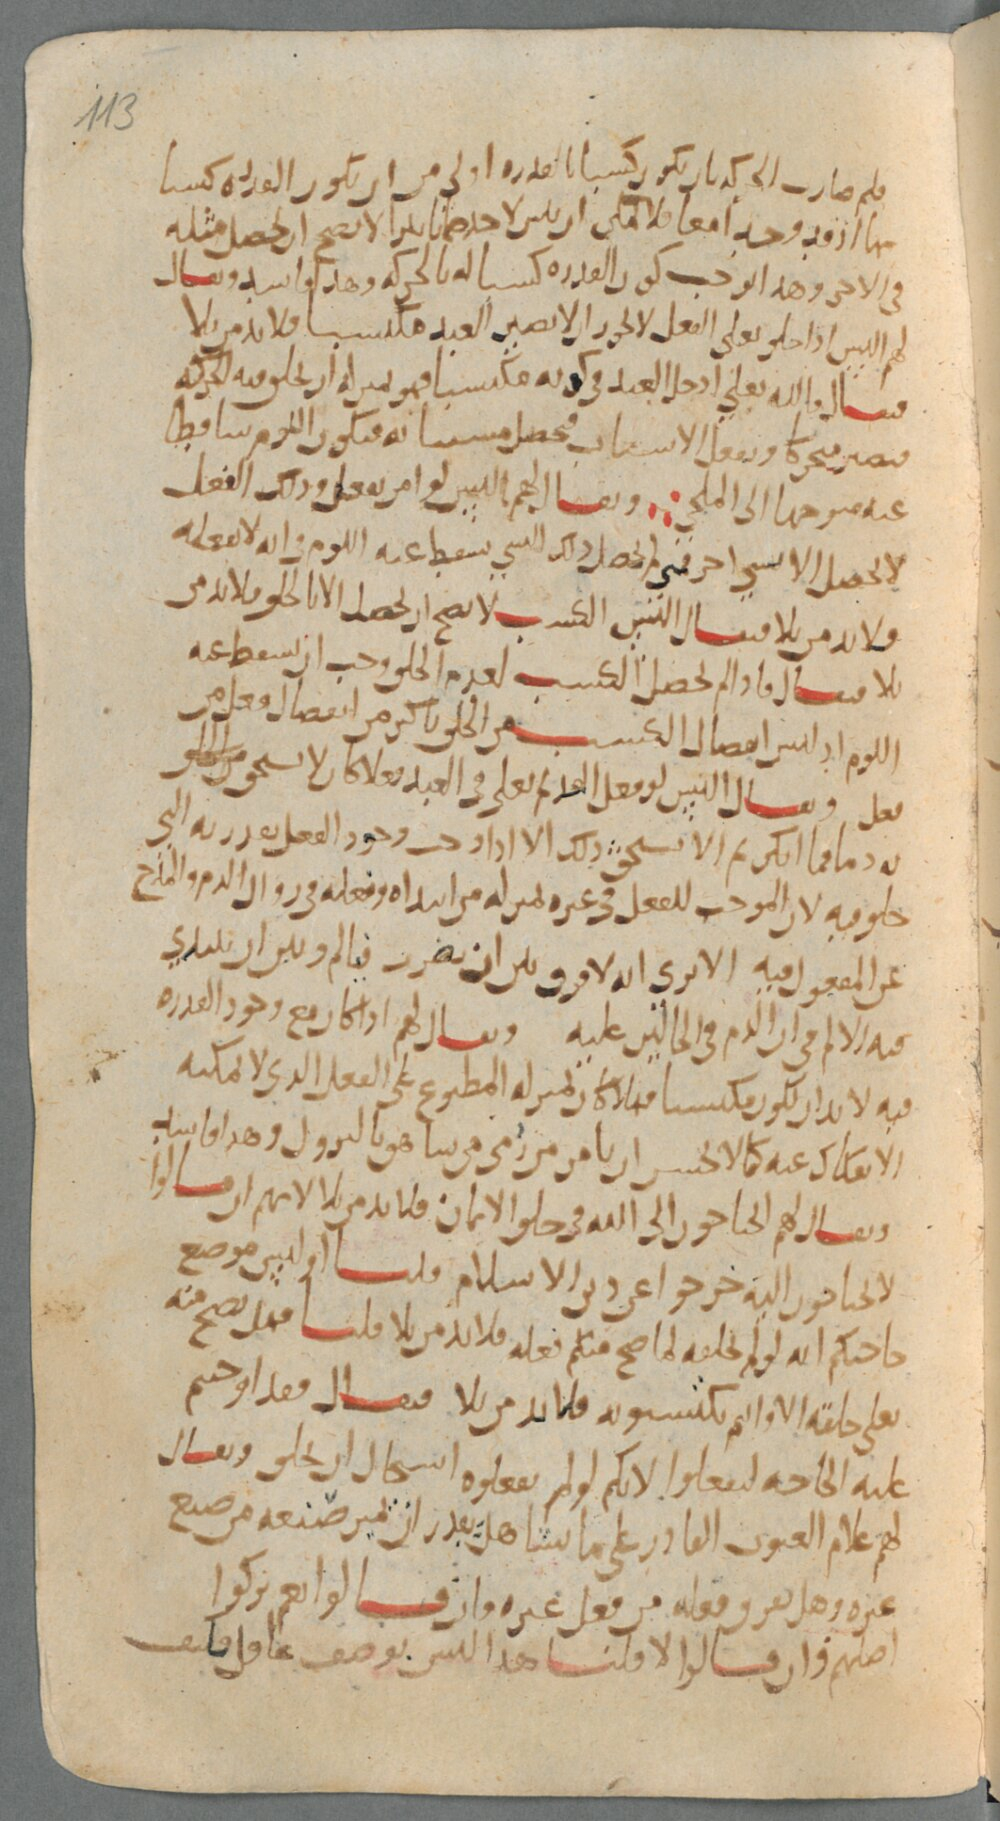 113
فلم صارت الحركة بان تكون كسبا بالقدرة اولى من ان تكون القدرة كسبا
بها اذ قد وجدا معا فلا يمكن ان يبين لاحدهما تأثيرا لا يصح ان يحصل مثله
في الاخر وهذا يوجب كون القدرة كسبا له كالحركة وهذا فاسد ويقال
لهم اليس اذا خلق تعالى الفعل لا يجوز الا يصير العبد مكتسبا فلا بد من بلى
فيقال فالله تعالى ادخل العبد في كونه مكتسبا فهو بمنزلة ان يخلق فيه الحركة
فيصير متحركا ويفعل الاسباب فيحصل مسببا له فيكون اللوم ساقطا
عنه متوجها الى الملجئ ويقال لهم اليس لو امر بفعل وذلك الفعل
لا يحصل الا بشيء اخر فمتى لم يحصل ذلك الشيء يسقط عنه اللوم في انه لا يفعله
ولا بد من بلى فيقال اليس الكسب لا يصح ان يحصل الا بالخلق فلا بد من
بلى فيقال فاذا لم يحصل الكسب لعدم الخلق وجب ان يسقط عنه
اللوم اذ ليس انفصال الكسب من الخلق باكثر من انفصال فعل من
فعل ويقال اليس لو فعل القديم تعالى في العبد فعلا كان لا يستحق
به ذما فما انكرتم الا يستحق ذلك الا اذا اوجب وجود الفعل بقدرته التي
خلق فيه لان الموجب للفعل في غيره بمنزلة من ابتداه وفعله في زوال الذم والمدح
عن المفعول فيه الا ترى انه لا فرق بين ان يضرب فيالم وبين ان يبتدي
فيه الالم في ان الذم في الحالين عليه ويقال لهم اذا كان مع وجود القدرة
فيه لا بد ان يكون مكتسبا فهلا كان بمنزلة المطبوع على الفعل الذي لا يمكنه
الانفكاك عنه كما لا يحسن ان يامر من رمى من شاهق بالنزول وهذا فاسد
ويقال لهم اتحتاجون الى الله في خلق الايمان فلا بد من بلى لانهم ان قالوا
لا نحتاجون اليه خرجوا عن دين الاسلام قلنا اوليس موضع
حاجتكم انه لو لم يخلقه لما صح منكم فعله فلا بد من بلى قلنا فهل يصح منه
تعالى خلقه الا وانتم تكتسبونه فلا بد من بلى فيقال فقد اوجبتم
عليه الحاجة ليفعلوا لانكم لو لم تفعلوه استحال ان يخلق ويقال
لهم علام الغيوب القادر على ما يشا هل يقدر ان يميز صنعه من صنع
غيره وهل يعرف فعله من فعل غيره فان قالوا نعم تركوا
اصلهم وان قالوا لا قلنا هذا ليس بوصف عاقل فكيف